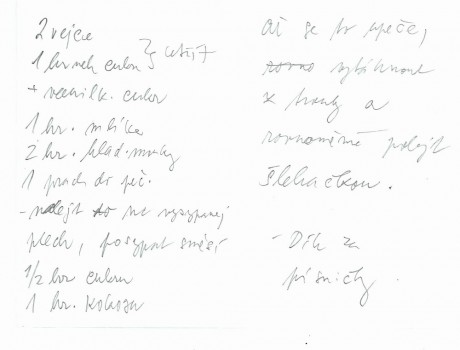 2 vejce
1 hrnek cukru } ušlehat
+ vanilk. cukr
1 hr. mléka
2 hr. hlad. mouky
1 prach do peč.
- nalejt to na vysypanej
plech, posypat směsí
1/2 hr cukru
1 hr. kokosu
Až se to upeče,
vytáhnout
z trouby a
rovnoměrně polejt
šlehačkou.
- Dík za
písničky.